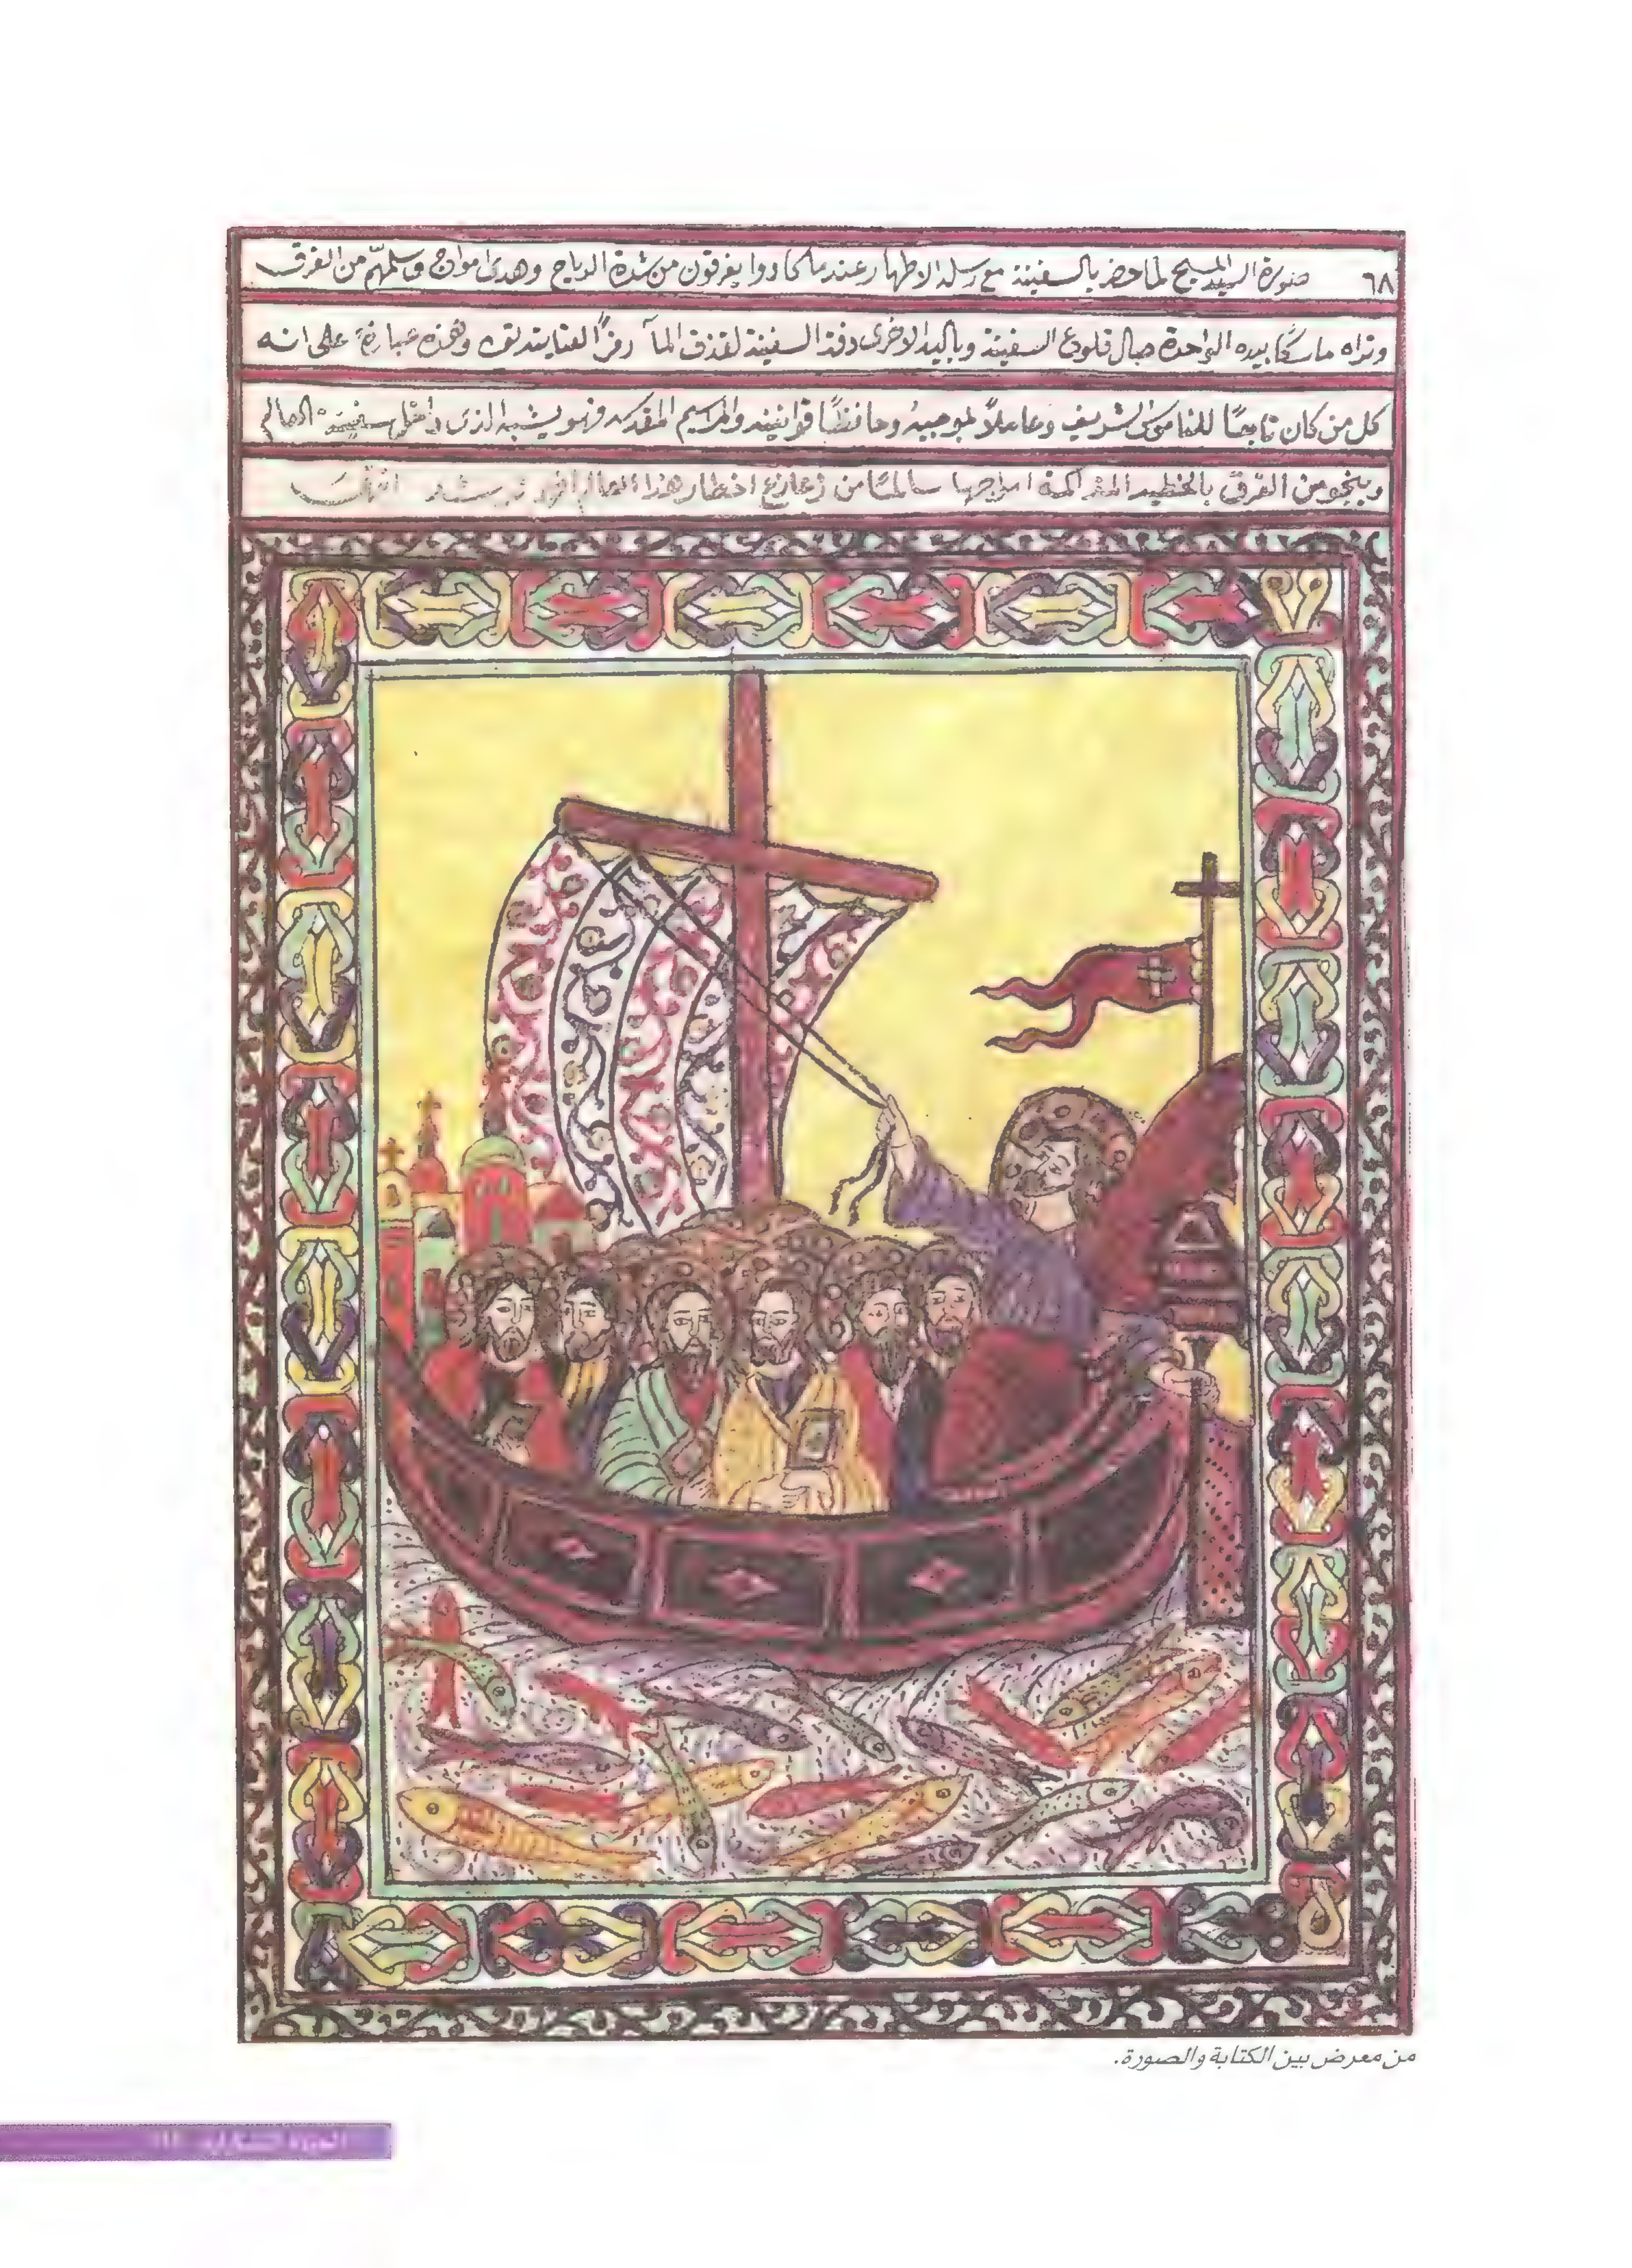 ٦٨ صورة السيد المسيح لما حضر بالسفينة مع رسله الاطهار عندما كادوا يغرقون من شدة الرياح وهدى امواج وسلمهم من الغرق
وتراه ماسكًا بيده الواحدة حبال قلوع السفينة وباليد الاخرى دفة السفينة لقذف المآ رمزًا لعنايته وهذه عبارة على انه
كل من كان تابعًا للناموس الشريف وعاملاً بموجبه وحافظًا قوانينه والمراسيم المقدسه فهو يشبه الذى داخل سفينة العالم
وينجو من الغرق المتراكمة امواجها سالمًا من زعازع اخطار هذا العالم
من معرض بين الكتابة والصورة.